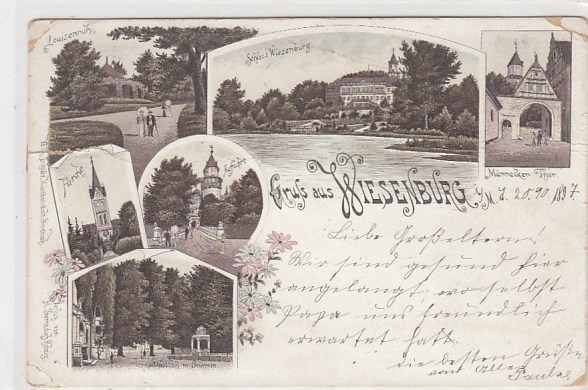 Louisenruh.
Schloss Wiesenburg.
Männeken-Thor.
Kirche
Einfahrt
Gruss aus WIESENBURG
d. 20. 1897
Liebe Großeltern!
Wir sind gesund hier
angelangt wo selbst
Papa uns freundlich
erwartet hatt.
die besten Grüße
von Allen
Schlosshof m. Brunnen